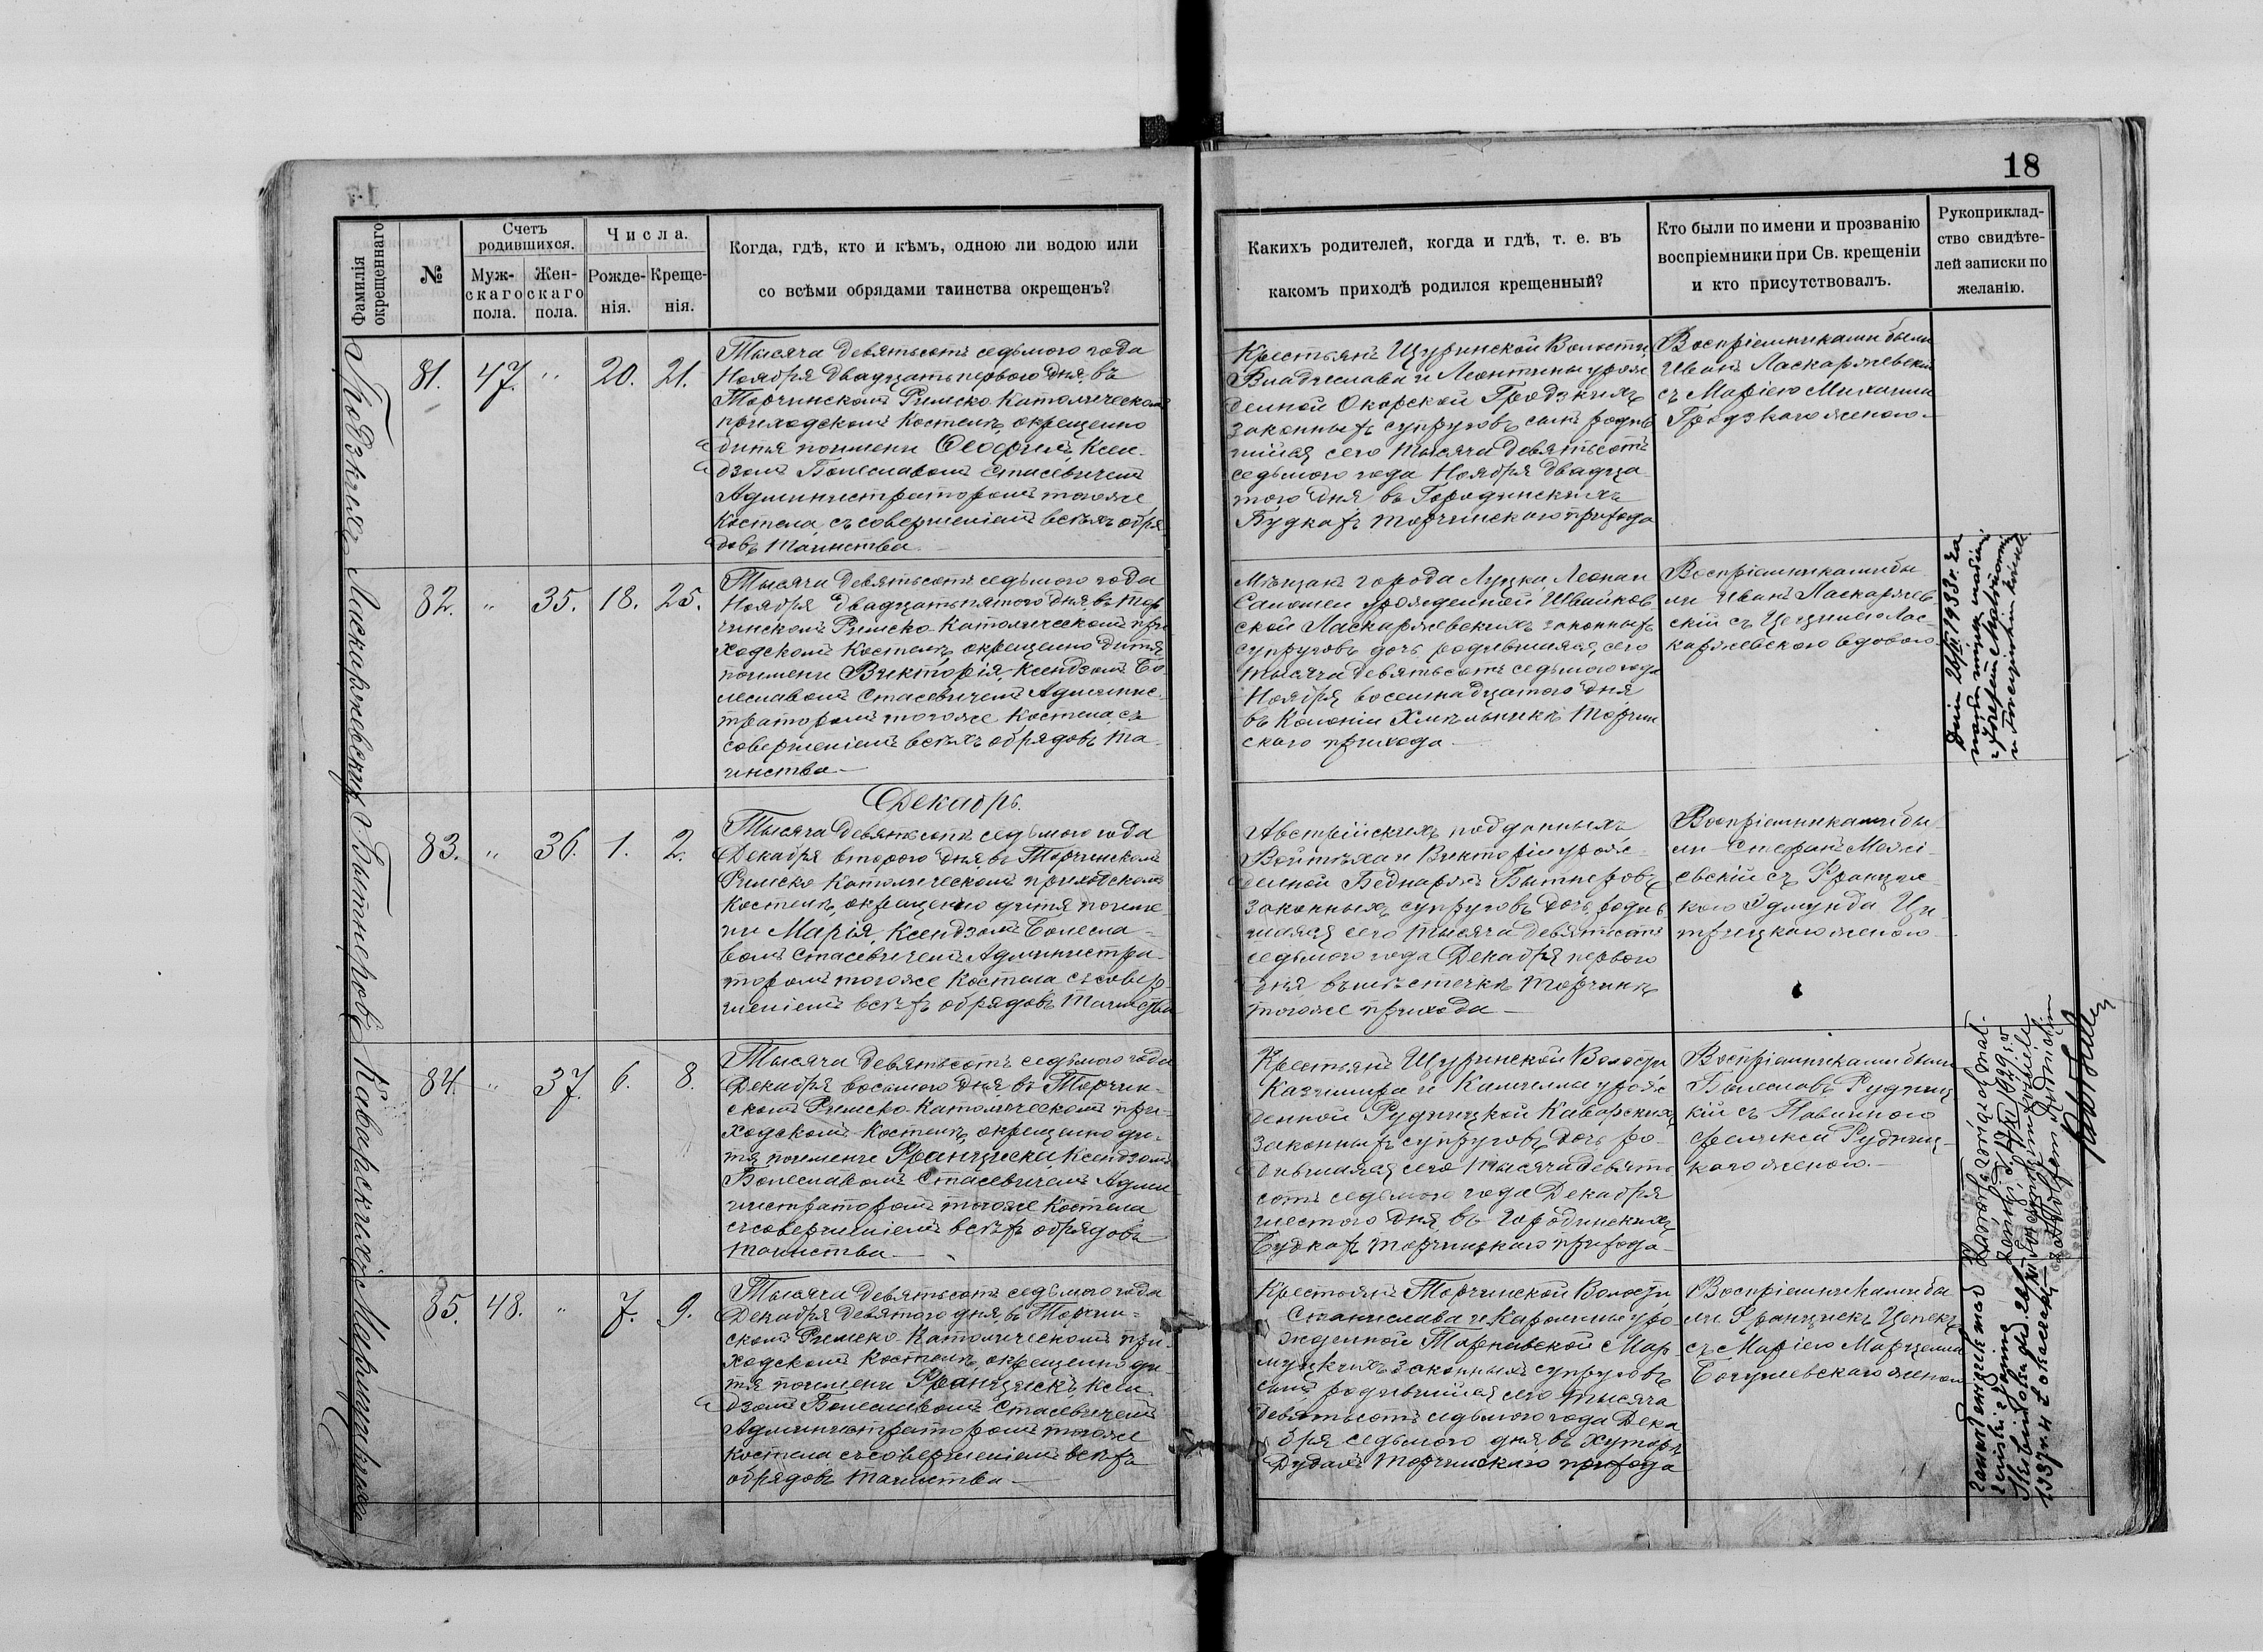 18
Фамилія окрещеннаго
№
Счетъ родившихся.
Муж-
скаго
пола.
Жен-
скаго
пола.
Числа.
Рожде-
нія.
Креще-
нія.
Когда, гдѣ, кто и кѣмъ, одною ли водою или
со всѣми обрядами таинства окрещенъ?
Какихъ родителей, когда и гдѣ, т. е. въ
какомъ приходѣ родился крещенный?
Кто были по имени и прозванію
воспріемники при Св. крещеніи
и кто присутствовалъ.
Рукоприклад-
ство свидѣте-
лей записки по
желанію.
81. 47. " 20. 21.
Тысяча девятьсотъ седьмого года
Ноября двадцать перваго дня, въ
Торчинскомъ Римско-Католическомъ
приходскомъ Костелѣ, окрещенно
дитя поимени Ѳеофилъ, Ксен-
дзомъ Болеславомъ Стасевичемъ
Администраторомъ тогоже
Костела, съ совершеніемъ всѣхъ обря
довъ таинства.
Крестьянъ Щуринской Волости,
Владислава и Леонтины урож
денной Окорской Гродзкихъ
законныхъ супруговъ сынъ родив
шійся сего тысяча девятьсотъ
седьмого года Ноября двадца
того дня въ Городинскихъ
Будкахъ Торчинского прихода
Воспріемниками были
Иванъ Ласкаржевскій
съ Маріею Михаила
Гродзкаго женою.
82. " 35. 18. 25.
Тысяча девятьсотъ седьмого года
Ноября двадцать пятого дня, въ Тор
чинскомъ Римско-Католическомъ при
ходскомъ Костелѣ, окрещенно дитя
поимени Викторія, Ксендзомъ Бо
леславомъ Стасевичемъ Админис
траторомъ тогоже Костела, съ
совершеніемъ всѣхъ обрядовъ та-
инства
Мѣщанъ города Луцка Леона и
Саломеи урожденной Швайков
ской Ласкаржевскихъ законныхъ
супруговъ дочь родившаяся сего
тысяча девятьсотъ седьмого года
Ноября восемнадцатого дня
въ Колоніи Хмѣльникъ Торчин
ского прихода
Воспріемниками бы
ли Иванъ Ласкаржев
скій съ Цециліею Лас-
каржевскою вдовою
Декабрь.
83. " 36. 1. 2.
Тысяча девятьсотъ седьмого года
Декабря второго дня въ Торчинскомъ
Римско-Католическомъ приходскомъ
Костелѣ, окрещенно дитя поиме-
ни Марія, Ксендзомъ Болесла-
вомъ Стасевичемъ Администра-
торомъ тогоже Костела съ совер
шеніемъ всѣхъ обрядовъ таинства
Австрійскихъ подданныхъ
Войтѣха и Викторіи урож-
денной Беднаржъ Бытнеровъ
законныхъ супруговъ дочь родив
шаяся сего тысяча девятьсотъ
седьмого года Декабря перваго
дня въ мѣстечкѣ Торчинѣ
тогоже прихода
Воспріемниками бы-
ли Стефанъ
съ Францис-
кою Эдмунда
женою
84. " 37. 6. 8.
Тысяча девятьсотъ седьмого года
Декабря восьмого дня въ Торчин-
скомъ Римско-Католическомъ при-
ходскомъ Костелѣ, окрещенно ди-
тя поимени Франциска, Ксендзомъ
Болеславомъ Стасевичемъ Адми
нистраторомъ тогоже Костела
съ совершеніемъ всѣхъ обрядовъ
таинства
Крестьянъ Щуринской Волости
Казимира и Камиллы урож
денной Рудницкой Каварскихъ
законныхъ супруговъ дочь ро-
дившаяся сего тысяча девять
сотъ седьмого года Декабря
шестого дня въ Городинскихъ
Будкахъ Торчинскаго прихода
Воспріемниками были
Болеславъ Рудниц
кій съ Павлиною
Феликса Рудниц-
каго женою.
85. 48. " 7. 9.
Тысяча девятьсотъ седьмого года
Декабря девятого дня, въ Торчин-
скомъ Римско-Католическомъ при-
ходскомъ Костелѣ, окрещенно ди-
тя поимени Францискъ, Ксен-
дзомъ Болеславомъ Стасевичемъ
Администраторомъ тогоже
Костела съ совершеніемъ всѣхъ
обрядовъ таинства
Крестьянъ Торчинской Волости
Станислава и Каролины уро
жденной Тарнавской
законныхъ супруговъ
сынъ родившійся сего тысяча
девятьсотъ седьмого года Дека
бря седьмого дня въ Хуторѣ
Торчинскаго прихода
Воспріемниками бы
ли Францискъ
съ Маріею
женою
Гродзкихъ
Ласкаржевскихъ
Бытнеровъ
Каварскихъ